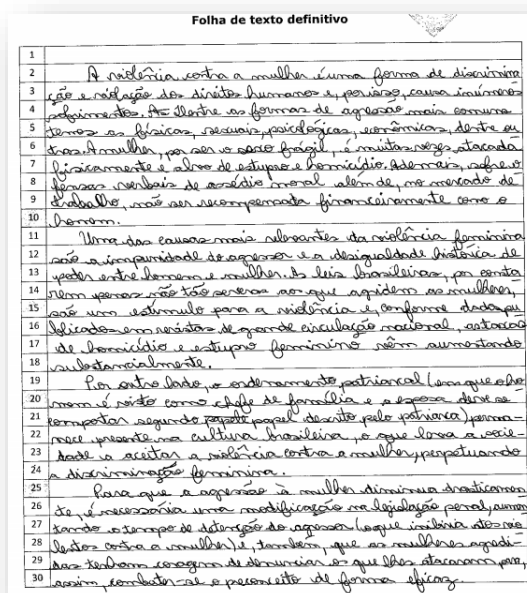 Folha de texto definitivo
1
2 A violência contra a mulher é uma forma de discrimina
3 ção e violação dos direitos humanos e, por isso, causa inúmeros
4 sofrimentos. As dentre as formas de agressão mais comuns
5 temos as físicas, sexuais, psicológicas, econômicas, dentre ou
6 tras. A mulher, por ser o sexo frágil, é muitas vezes atacada
7 fisicamente e alvo de estupro e homicídio. Ademais, sofre o
8 fensas verbais de assédio moral alem de, no mercado de
9 trabalho, não ser recompensada financeiramente como o
10 homem.
11 Uma das causas mais relevantes da violência feminina
12 são a impunidade do agressor e a desigualdade histórica de
13 poder entre homem e mulher. As leis brasileiras, por conta
14 rem penas não tão severas aos que agridem as mulheres,
15 são um estimulo para a violência e, conforme dados pu
16 blicados em revistas de grande circulação nacional, as taxas
17 de homicídio e estupro feminino vêm aumentando
18 substancialmente.
19 Por outro lado, o ordenamento patriarcal (em que o ho
20 mem é visto como chefe de família e a esposa deve se
21 comportar segundo papel descrito pelo patriarca) perma-
22 nece presente na cultura brasileira, o que leva a socie
23 dade a aceitar a violência contra a mulher, perpetuando
24 a discriminação feminina.
25 Para que a agressão à mulher diminua drasticamen
26 te, é necessária uma modificação na legislação penal, aumen
27 tando o tempo de detenção do agressor (o que inibiria atos vio
28 lentos contra a mulher) e, também, que as mulheres agredi-
29 das tenham coragem de denunciar os que lhes atacaram para,
30 assim, combater-se o preconceito de forma eficaz.